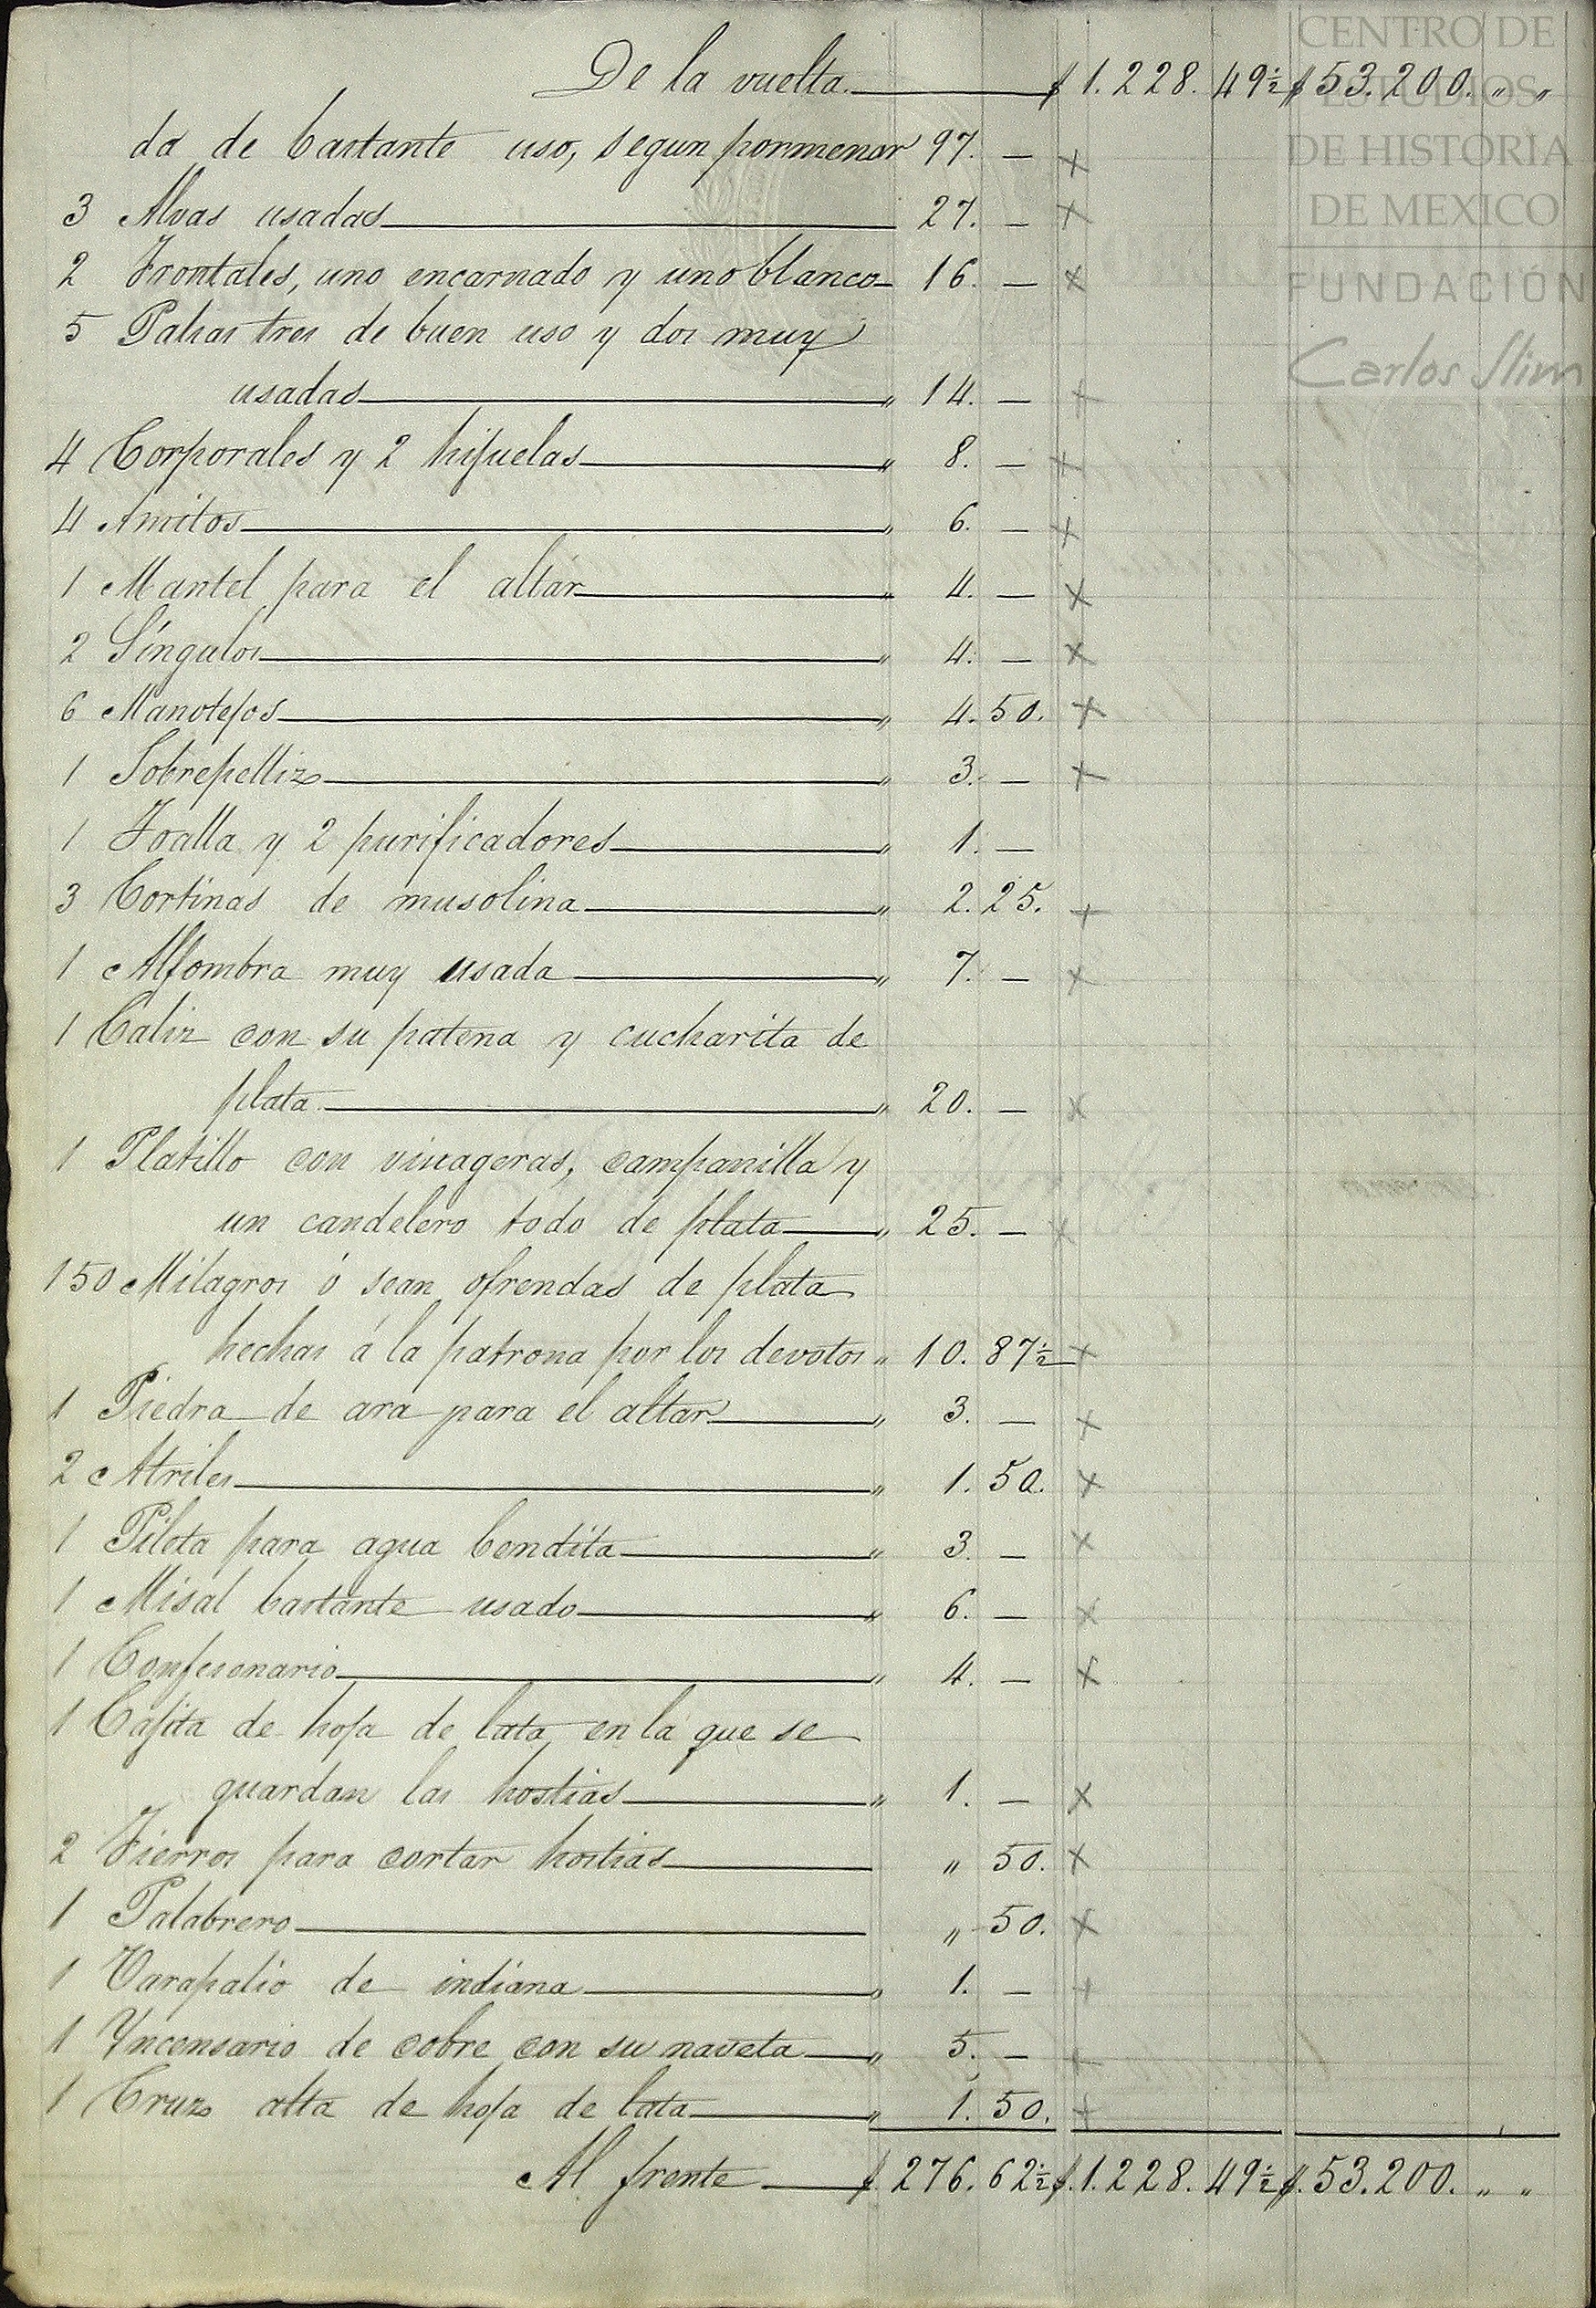 CENTRO DE
ESTUDIOS
DE HISTORIA
DE MEXICO
FUNDACIÓN
Carlos Slim
De la vuelta $ 1.228. 49½ $ 53.200. " "
da de bastante uso, segun pormenor 97. — x
3 Alvas usadas 27. — x
2 Frontales, uno encarnado y uno blanco 16. — x
5 Palias tres de buen uso y dos muy
usadas " 14. — x
4 Corporales y 2 hijuelas " 8. — x
4 Amitos " 6. — x
1 Mantel para el altar " 4. — x
2 Síngulos " 4. — x
6 Manotejos " 4. 50. x
1 Sobrepelliz " 3. — x
1 Toalla y 2 purificadores " 1. —
3 Cortinas de musolina " 2. 25. x
1 Alfombra muy usada " 7. — x
1 Caliz con su patena y cucharita de
plata " 20. — x
1 Platillo con vinageras, campanilla y
un candelero todo de plata " 25. — x
150 Milagros ó sean ofrendas de plata
hechas á la patrona por los devotos " 10. 87½ x
1 Piedra de ara para el altar " 3. — x
2 Atriles " 1. 50. x
1 Pileta para agua bendita " 3. — x
1 Misal bastante usado " 6. — x
1 Confesonario " 4. — x
1 Cajita de hoja de lata en la que se
guardan las hostias " 1. — x
2 Fierros para cortar hostias " 50. x
1 Palabrero " 50. x
1 Varapalio de indiana " 1. — x
1 Yncensario de cobre con su naveta " 5. — x
1 Cruz alta de hoja de lata " 1. 50. x
Al frente $. 276. 62½ $. 1.228. 49½ $. 53.200. " "